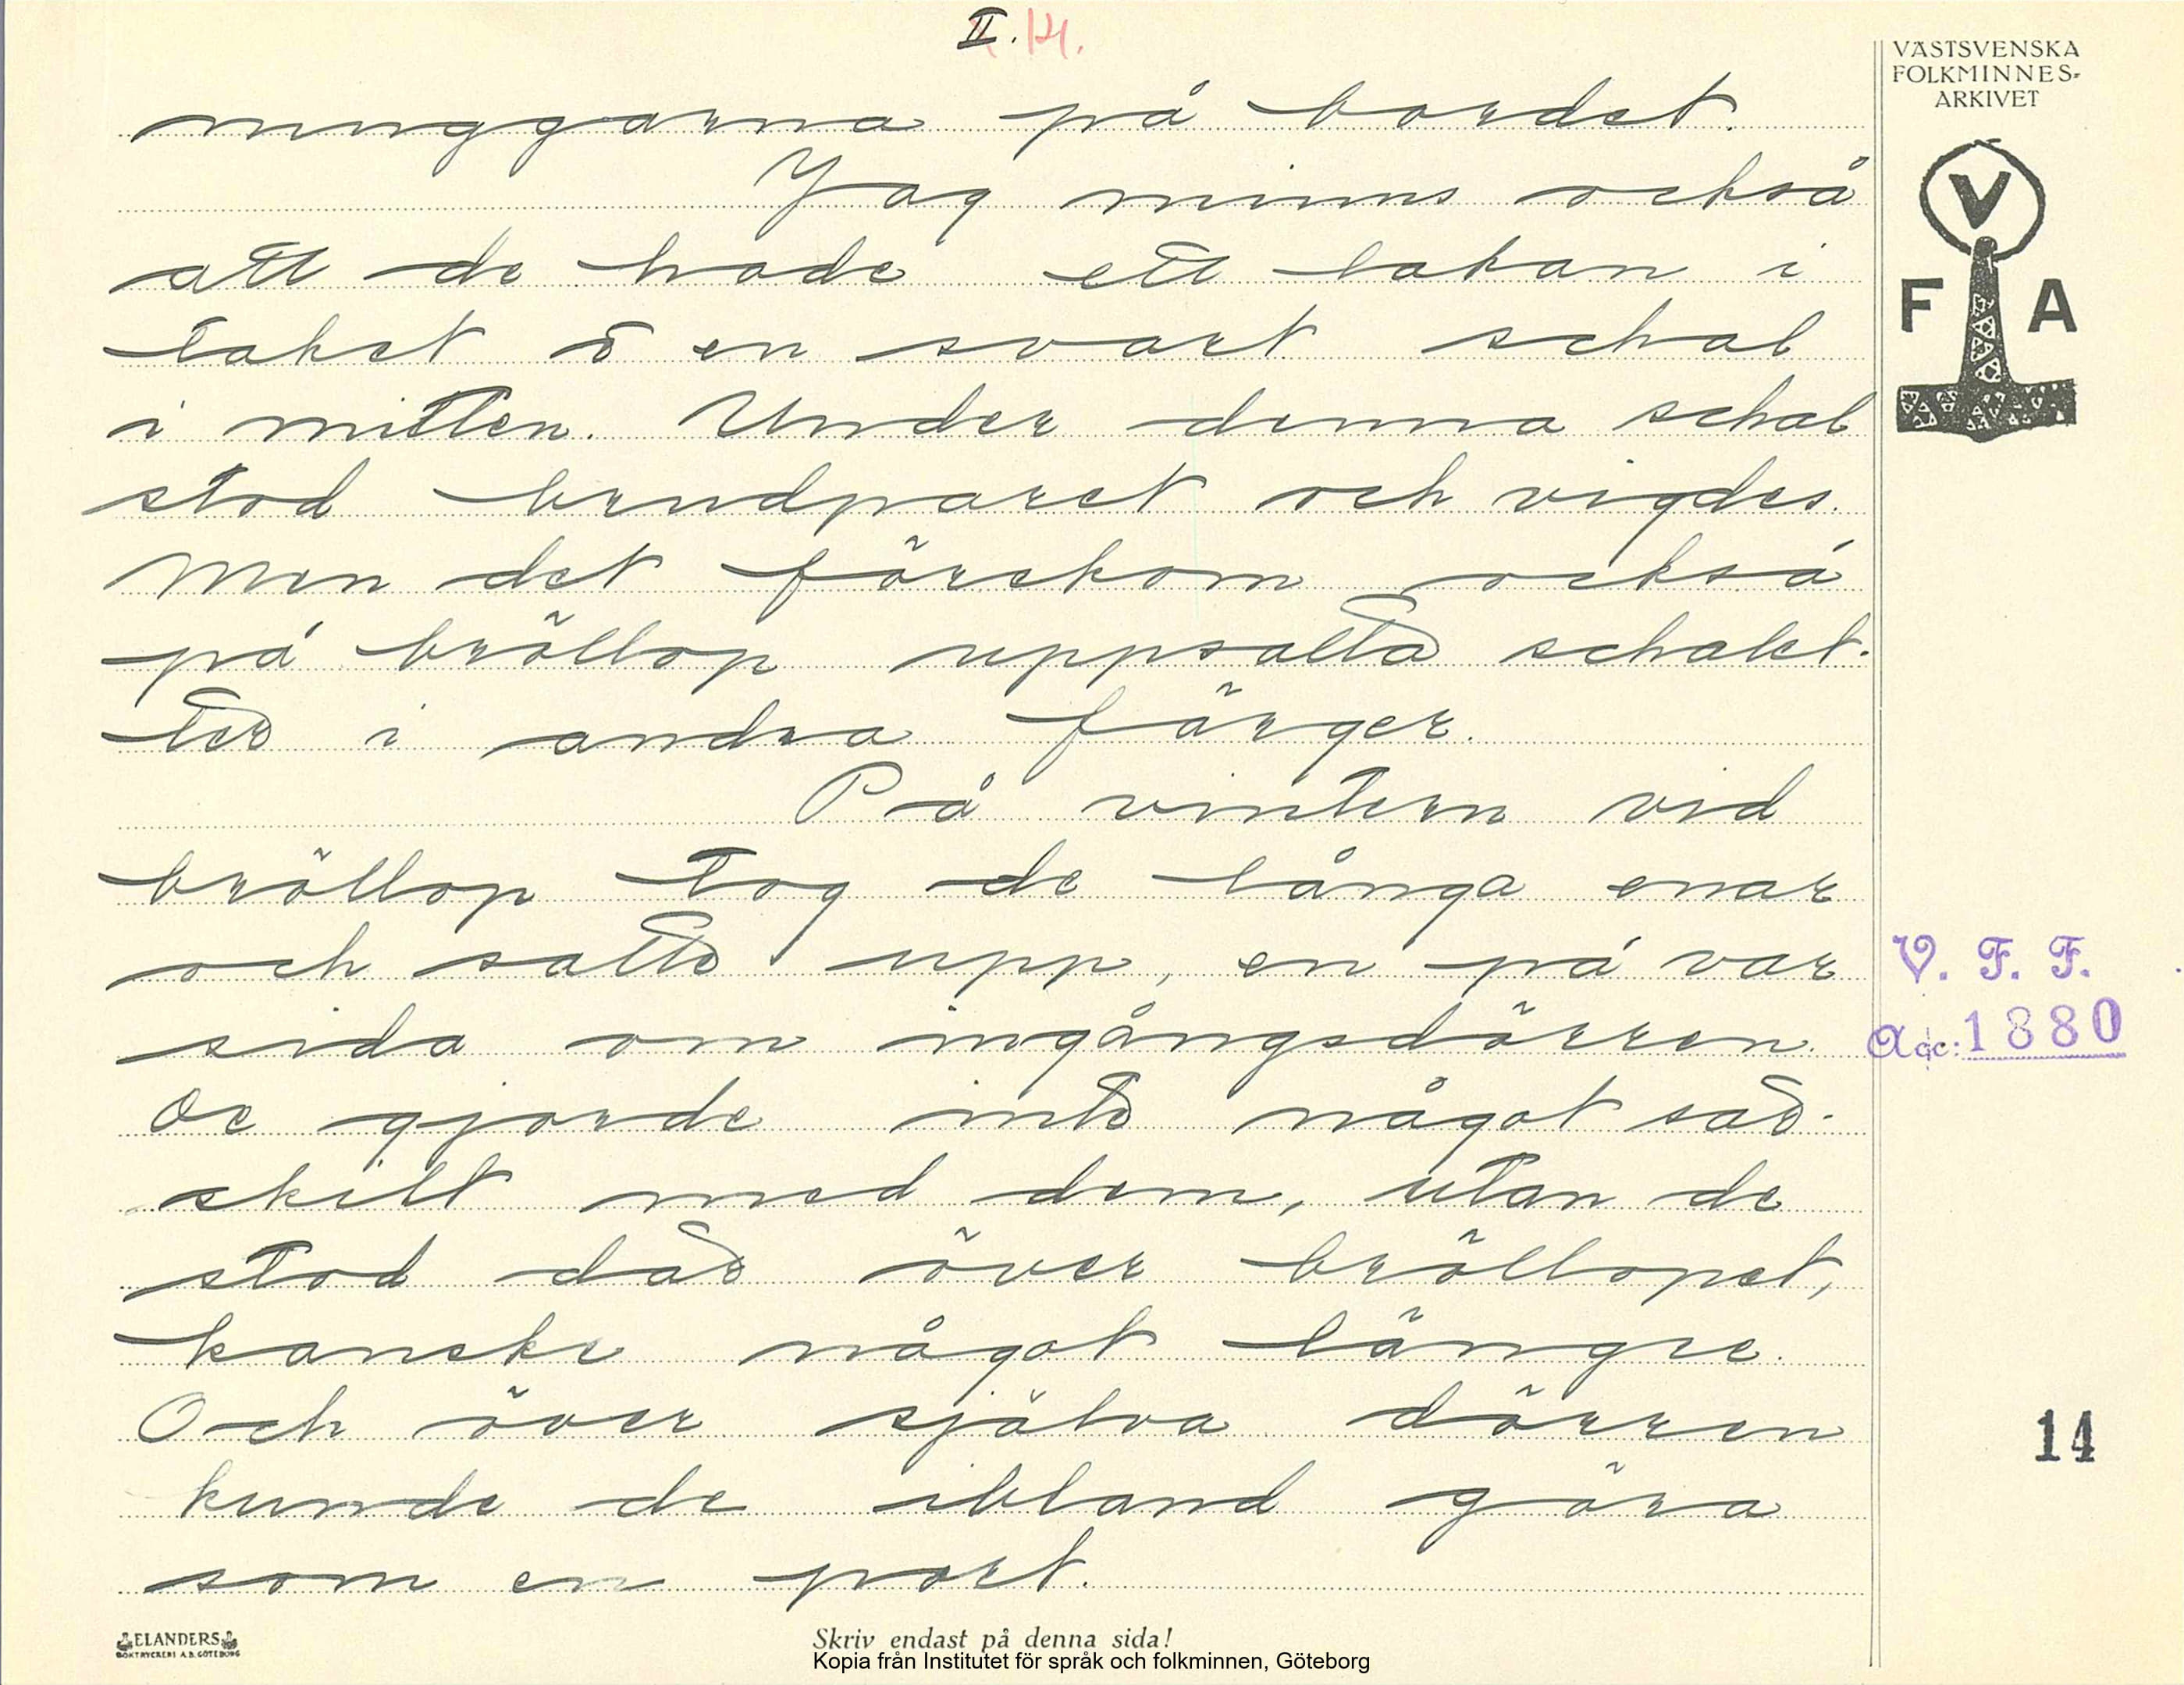 II. 14.
VÄSTSVENSKA
FOLKMINNES-
ARKIVET
V
F A
muggarna på bordet.
Jag minns också
att de hade ett lakan i
taket o en svart schal
i mitten. Under denna schal
stod brudparet och vigdes.
Men det förekom också
på bröllop uppsatta schalet-
ter i andra färger.
På vintern vid
bröllop tog de långa enar
och satte upp, en på var
sida om ingångsdörren.
De gjorde inte något sär-
skilt med dem, utan de
stod där över bröllopet,
kanske något längre.
Och över själva dörren
kunde de ibland göra
som en port.
V. F. F.
Acc: 1880
14
ELANDERS
BOKTRYCKERI A.B. GÖTEBORG
Skriv endast på denna sida!
Kopia från Institutet för språk och folkminnen, Göteborg